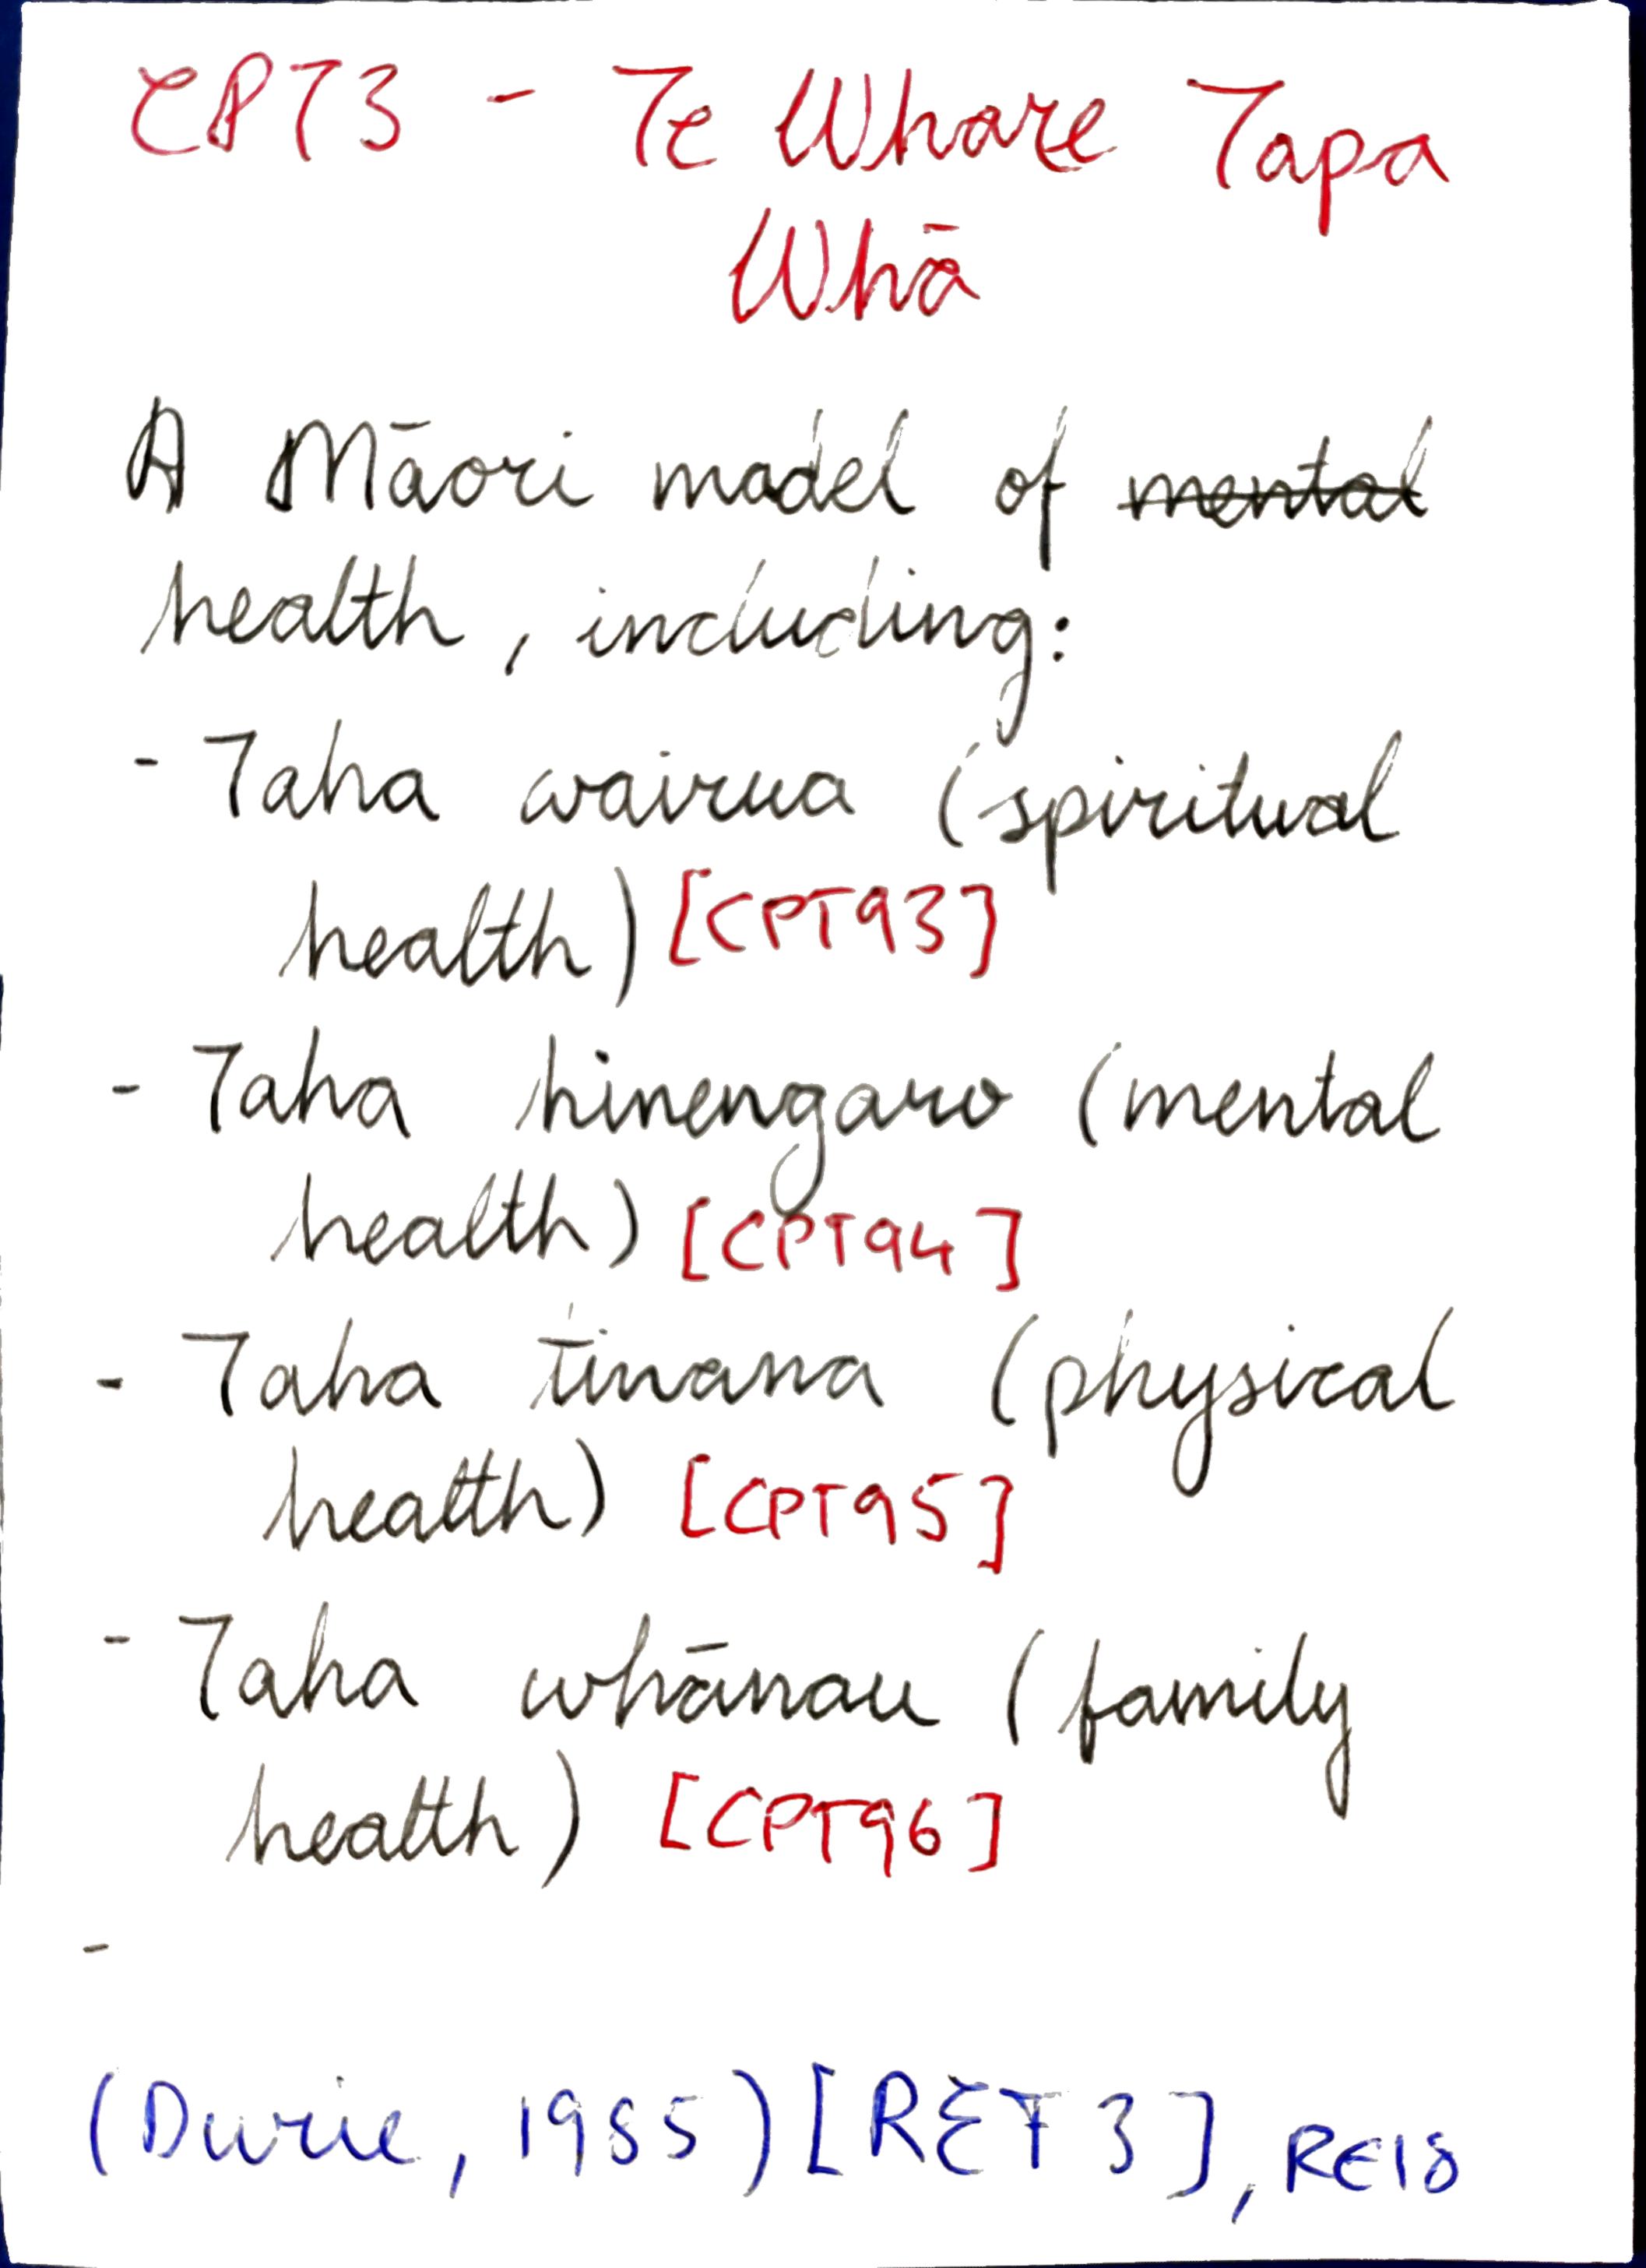 CPT3 - Te Whare Tapa
Whā
A Māori model of ~~mental~~
health, including:
- Taha wairua (spiritual
health) [CPT93]
- Taha hinengaro (mental
health) [CPT94]
- Taha tinana (physical
health) [CPT95]
- Taha whānau (family
health) [CPT96]
-
(Durie, 1985) [REF3], RE18